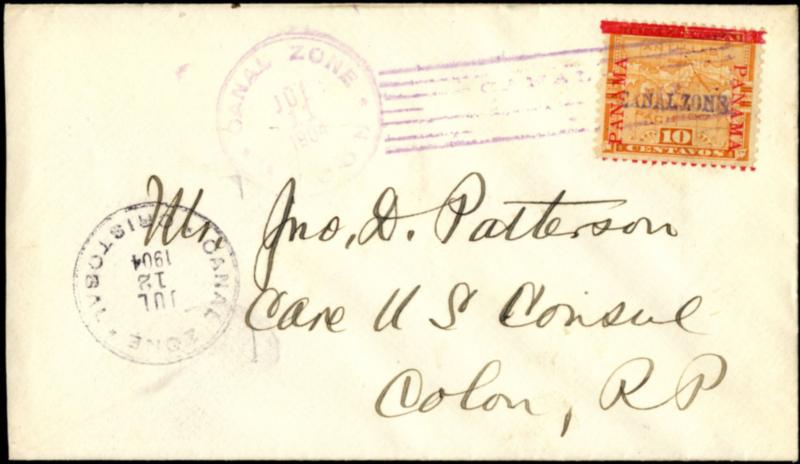 CANAL ZONE
1904
CANAL
PANAMA
PANAMA
CANAL ZONE
10
CENTAVOS
Mr. Jno. D. Patterson
Care U S Consul
Colon, R P
CRISTOBAL
CANAL ZONE
JUL
12
1904